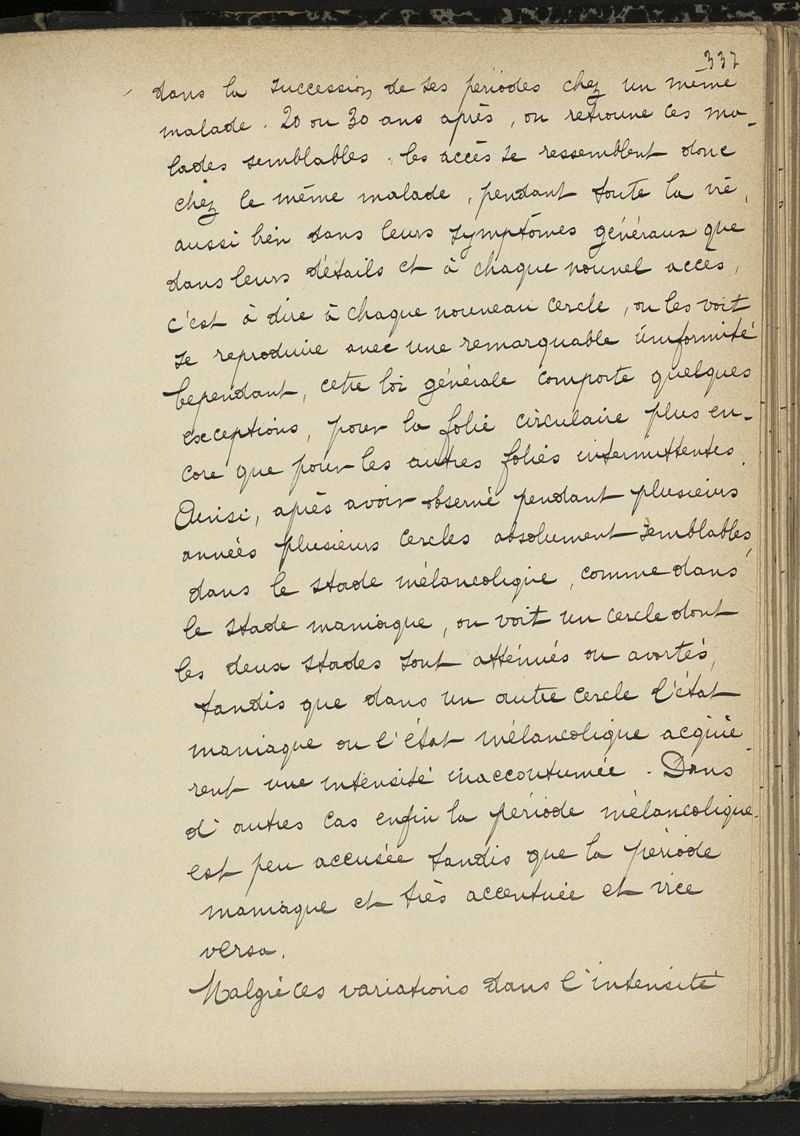 337
dans la succession de ses périodes chez un même
malade. 20 ou 30 ans après, on retrouve ces ma-
lades semblables. Les accès se ressemblent donc
chez le même malade, pendant toute la vie,
aussi bien dans leurs symptômes généraux que
dans leurs détails et à chaque nouvel accès,
c'est à dire à chaque nouveau cercle, on les voit
se reproduire avec une remarquable uniformité
Cependant, cette loi générale comporte quelques
exceptions, pour la folie circulaire plus en-
core que pour les autres folies intermittentes.
Ainsi, après avoir observé pendant plusieurs
années plusieurs cercles absolument semblables,
dans le stade mélancolique, comme dans
le stade maniaque, on voit un cercle dont
les deux stades sont atténués ou avortés,
tandis que dans un autre cercle l'état
maniaque ou l'état mélancolique acquiè-
rent une intensité inaccoutumée. Dans
d'autres cas enfin la période mélancolique
est peu accusée tandis que la période
maniaque et très accentuée et vice
versa.
Malgré ces variations dans l'intensité